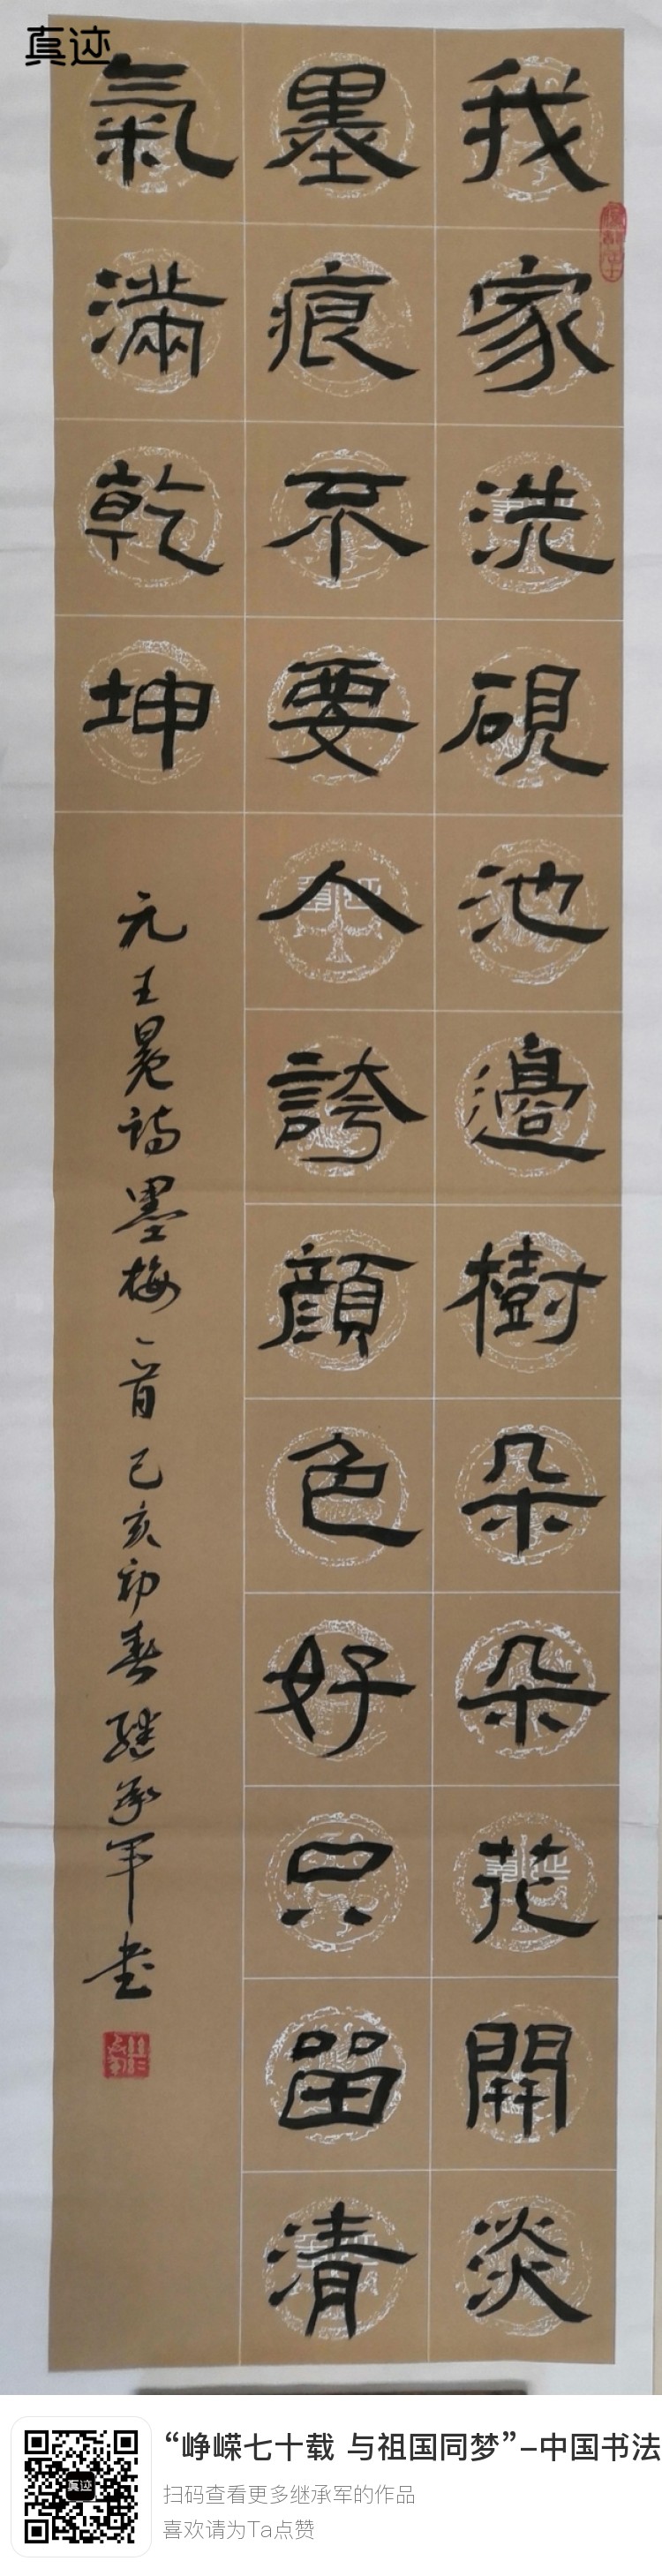 真迹
我家洗硯池邊樹朵朵花開淡
墨痕不要人誇顔色好只留清
氣滿乾坤
元王冕詩墨梅一首己亥初春繼承军书
真迹
“峥嵘七十载 与祖国同梦”–中国书法
扫码查看更多继承军的作品
喜欢请为Ta点赞